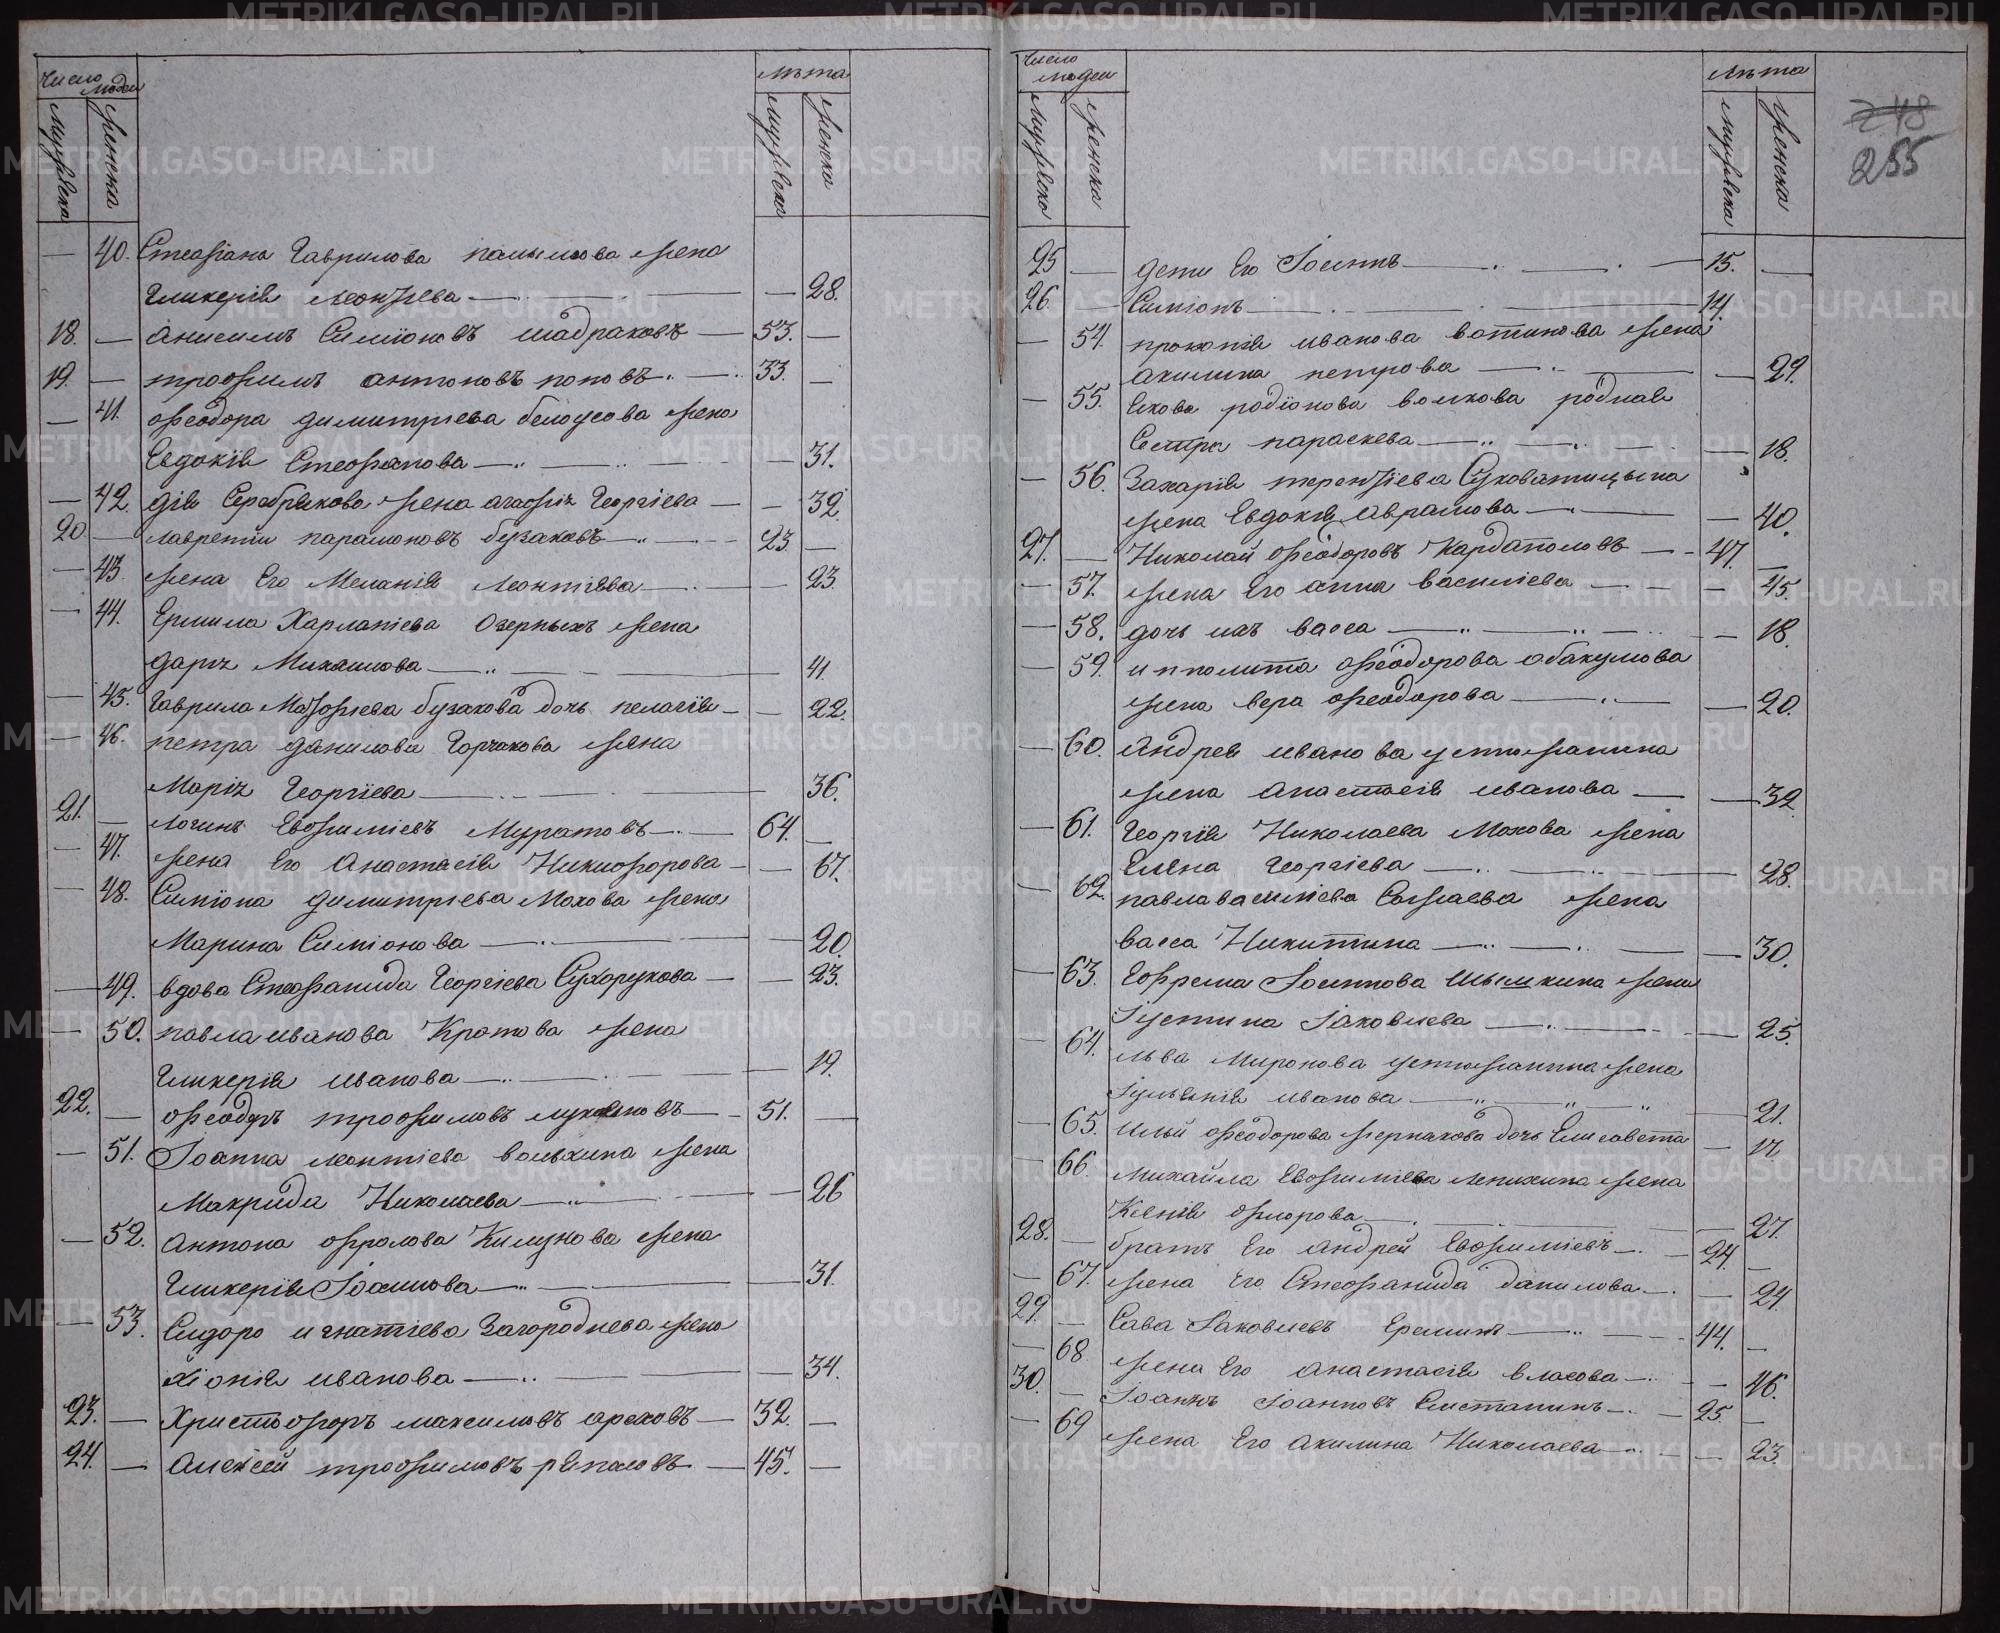 Число людей
мужеска
женска
лѣта
мужеска
женска
— 40. Стефана Гаврилова женa
Гликерія Леонтіева — — 28.
18. — Анисимъ Симіоновъ Шадраковъ — 53. —
19. — трофимъ антоновъ поповъ — 33. —
— 41. Феодора димитріева белоусова жена
Евдокія Стефанова — — 31.
— 42. жена агафія Георгіева — — 32.
20 — лаврентій парамоновъ бузаковъ — 23. —
— 43. жена Его Меланія Леонтіева — — 23.
— 44. Ермила Харлапіева Озерныхъ жена
дарія Михаилова — — 41.
— 45. Гаврила бузакова дочь пелагія — — 22.
— 46. петра данилова Горчакова жена
Марія Георгіева — — 36.
21. — логинъ Евфиміевъ Муратовъ — 64. —
— 47. жена Его Анастасія Никифорова — — 67.
— 48. Симіона димитріева Мохова жена
Марина Симіонова — — 20.
— 49. вдова Стефанида Георгіева Сухорукова — — 23.
— 50. павла иванова Кротова жена
Гликерія иванова — — 19.
22. — Феодоръ трофимовъ — 51. —
— 51. Іоанна леонтіева вольхина жена
Макрида Николаева — — 26
— 52. Антона фролова жена
Гликерія — — 31.
— 53. Сидора игнатіева Загороднева жена
Хіонія иванова — — 34.
23. — Христофоръ максимовъ ореховъ — 32. —
24. — Алексей трофимовъ — 45. —
Число людей
мужеска
женска
лѣта
мужеска
женска
248
255
25 — дети Его Іосипъ — 15. —
26. — Симіонъ — 14.
— 54. прокопія иванова вотинова жена
акилина петрова — — 29.
— 55. Якова родіонова волкова родная
Сестра параскева — — 18.
— 56. Захарія терентіева Суковатицына
жена Евдокія Аврамова — — 40.
27. — Николай Феодоровъ Кардаполовъ — 47. —
— 57. жена Его анна василіева — — 45.
— 58. дочь ихъ васса — — 18.
— 59. ипполита Феодорова абакумова
жена вера Феодорова — — 20.
— 60. Андрея иванова устюжанина
жена Анастасія иванова — — 32
— 61. Георгія Николаева Мохова жена
Елена Георгіева — — 28.
— 62. павла василіева жена
васса Никитина — — 30.
— 63. Ефрема Іосипова Шышкина жена
Іустина Іаковлева — — 25.
— 64. льва Миронова устюжанина жена
Іуліянія иванова — — 21.
— 65. Ильи Феодорова дочь Елисавета — 17
— 66. Михайла Евфиміева лепихина жена
Ксенія флорова — — 27.
28. — братъ Его Андрей Евфиміевъ — 24. —
— 67. жена Его Стефанида данилова — — 24.
29. — Сава Іаковлевъ Ереминъ — 44. —
— 68 жена Его анастасія власова — — 46.
30. — Іоаннъ Іоанновъ — 25. —
— 69 жена Его Акилина Николаева — — 23.